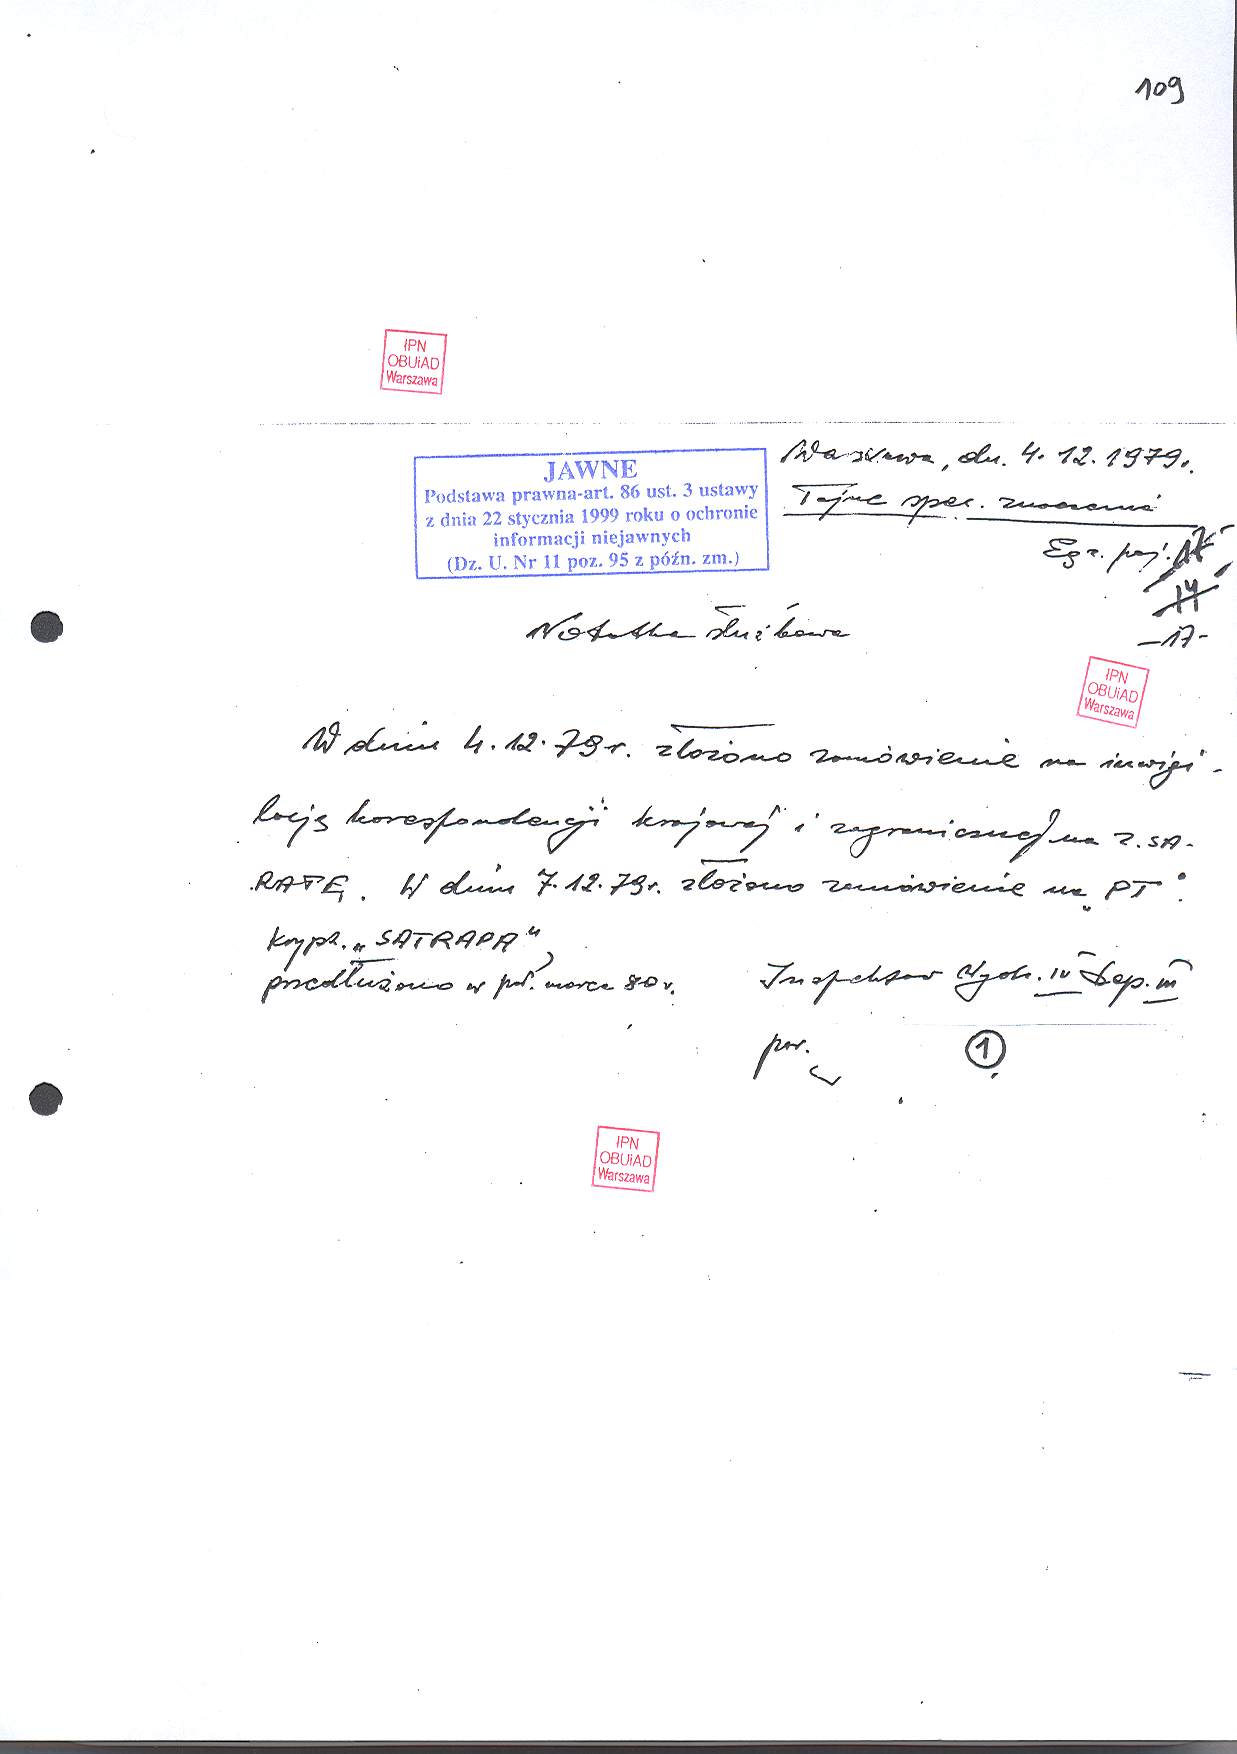 109
IPN
OBUiAD
Warszawa
JAWNE
Podstawa prawna-art. 86 ust. 3 ustawy
z dnia 22 stycznia 1999 roku o ochronie
informacji niejawnych
(Dz. U. Nr 11 poz. 95 z późn. zm.)
Warszawa, dn. 4.12.1979r.
Tajne spec. znaczenia
Egz. poj.
14
-17-
Notatka służbowa
IPN
OBUiAD
Warszawa
W dniu 4.12.79r. złożono zamówienie na inwigi-
lację korespondencji krajowej i zagranicznej na Z. SA-
RATĘ. W dniu 7.12.79r. złożono zamówienie na "PT"
krypt. „SATRAPA"
przedłużono w poł. marca 80r.
Inspektor Wydz. IV Dep. III
por.
1
IPN
OBUiAD
Warszawa